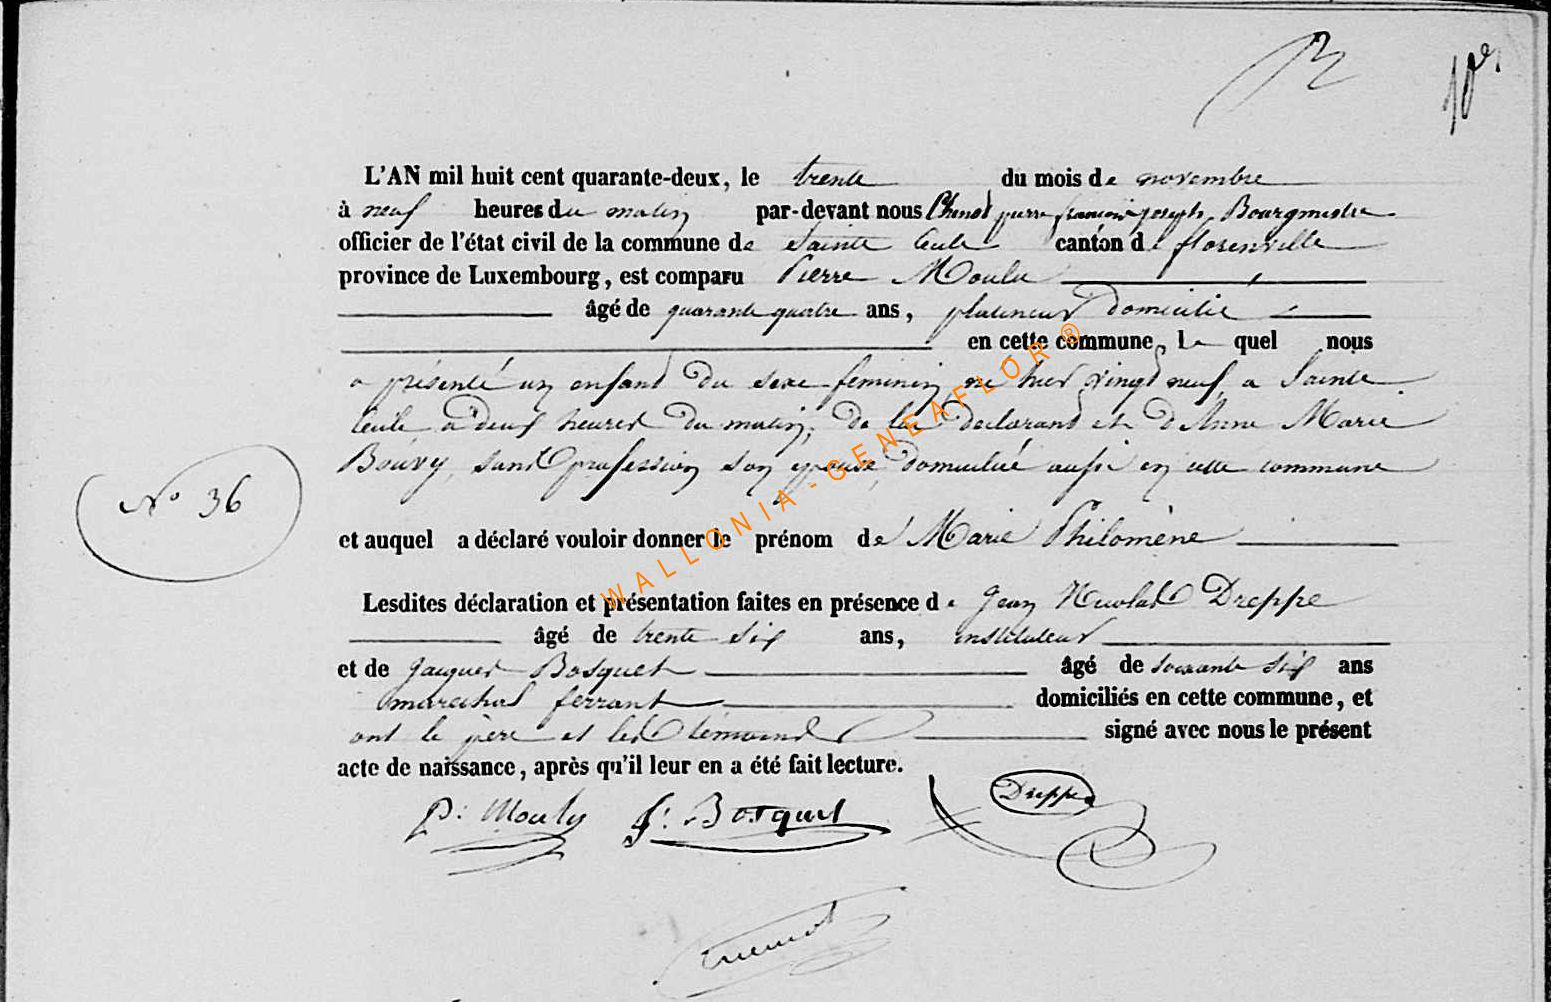 10e.
L'AN mil huit cent quarante-deux, le trente du mois de novembre
à neuf heures du matin par-devant nous Chenot pierre françois joseph Bourgmestre
officier de l'état civil de la commune de Sainte Cecile canton de florenville
province de Luxembourg, est comparu Pierre Moulu
âgé de quarante quatre ans, platineur domicilié
en cette commune, Le quel nous
a présenté un enfant du sexe feminin, né hier vingt neuf a Sainte
Cecile à deux heures du matin, de lui declarant et d'Anne Marie
Bouvy, sans profession son epouse, domiciliée aussi en cette commune
No 36
et auquel a déclaré vouloir donner le prénom de Marie Philomène
Lesdites déclaration et présentation faites en présence de Jean Nicolas Dreppe
âgé de trente six ans, instituteur
et de Jacques Bosquet âgé de soixante six ans
marechal ferrant domiciliés en cette commune, et
ont le père et les témoins signé avec nous le présent
acte de naissance, après qu'il leur en a été fait lecture.
P. Moulu J. Bosquet Dreppe
Chenot
WALLONIA-GENEAFLOR ®